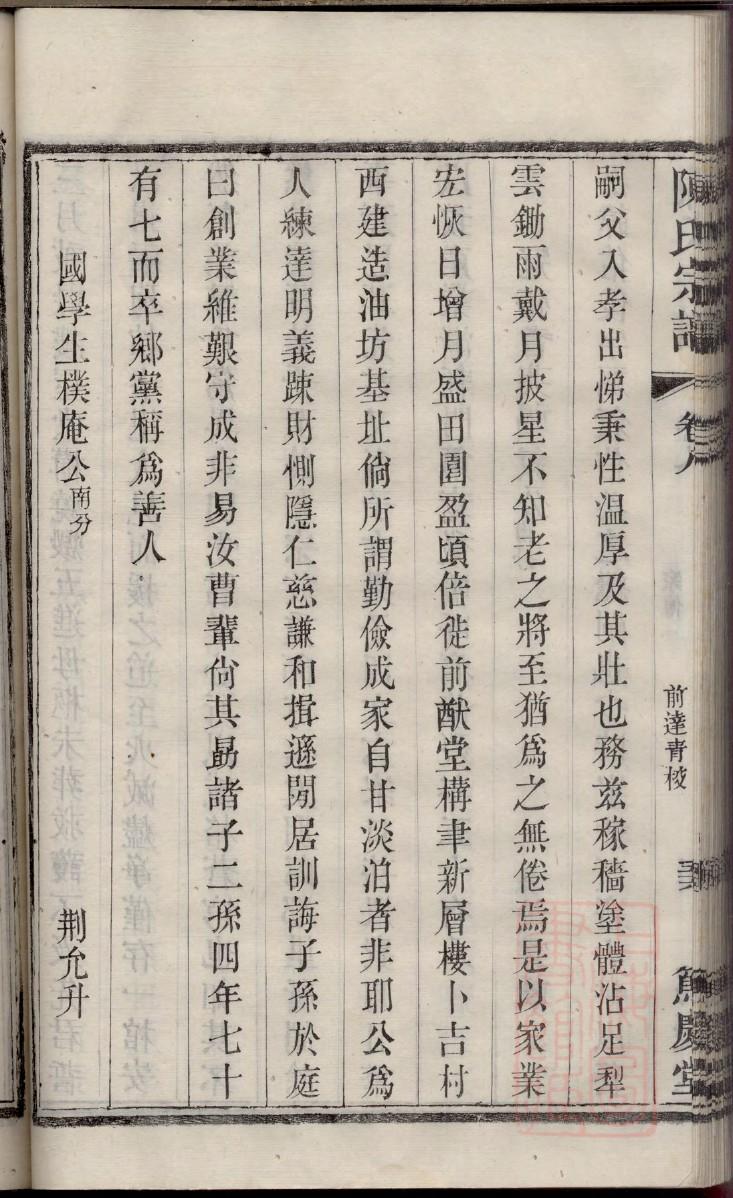 陳氏宗譜 卷八 前達青棱 篤慶堂
嗣父入孝出悌秉性温厚及其壯也務兹稼穡塗體沾足犁
雲鋤雨戴月披星不知老之將至猶爲之無倦焉是以家業
宏恢日增月盛田園盈頃倍徙前猷堂構聿新層樓卜吉村
西建造油坊基址倘所謂勤儉成家自甘淡泊者非耶公爲
人練達明義踈財惻隱仁慈謙和揖遜閒居訓誨子孫於庭
曰創業維艱守成非易汝曹輩尙其勗諸子二孫四年七十
有七而卒鄉黨稱爲善人
國學生樸庵公南分 荆允升